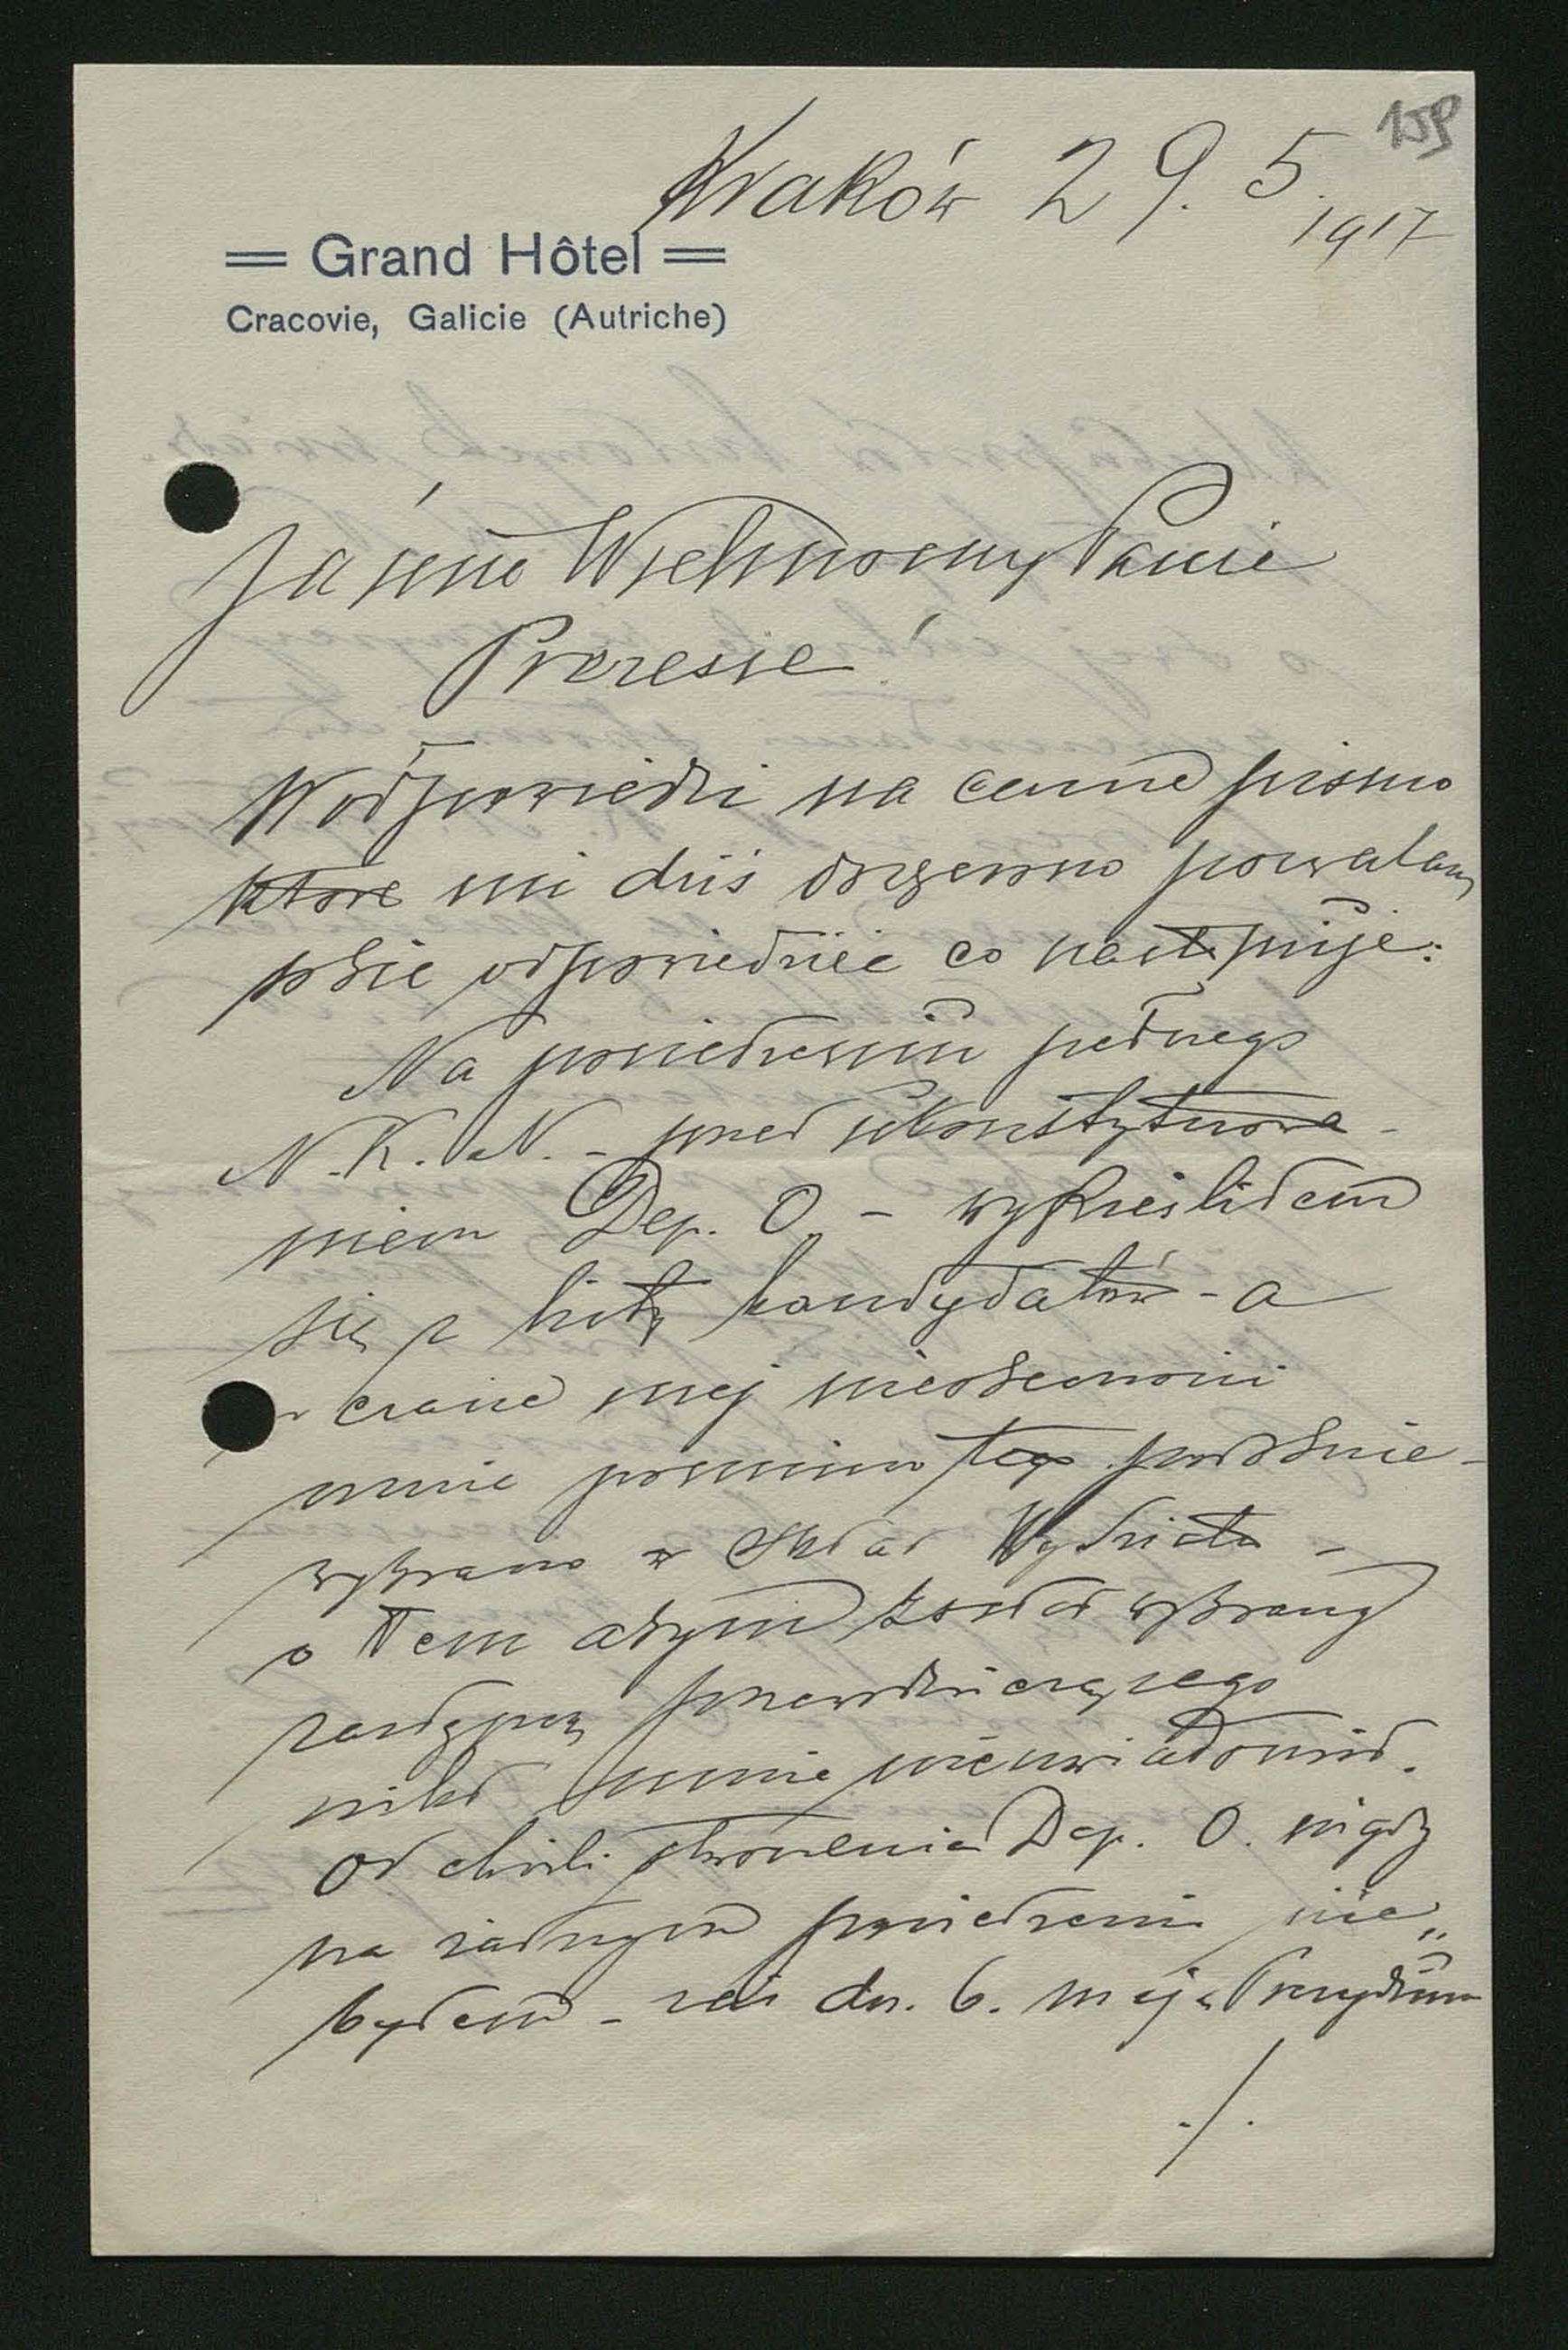 159
Kraków 29. 5. 1917
= Grand Hôtel =
Cracovie, Galicie (Autriche)
Jaśnie Wielmożny Panie
Prezesie!
W odpowiedzi na cenne pismo
które mi dziś doręczono pozwalam
sobie odpowiedzieć co następuje:
Na posiedzeniu pełnego
N.K.N. - przed ukonstytuowa-
niem Dep. O. - wykreśliłem
się z listy kandydatów - a
w czasie mej nieobecności
mnie pomimo tego powtórnie
wybrano w skład Wydziału -
o tem abym został wybrany
zastępcą przewodniczącego
nikt mnie nie uwiadomił.
Od chwili stworzenia Dep. O. nigdy
na żadnym posiedzeniu nie
byłem - zaś dn. 6. maja Prezydium
./.